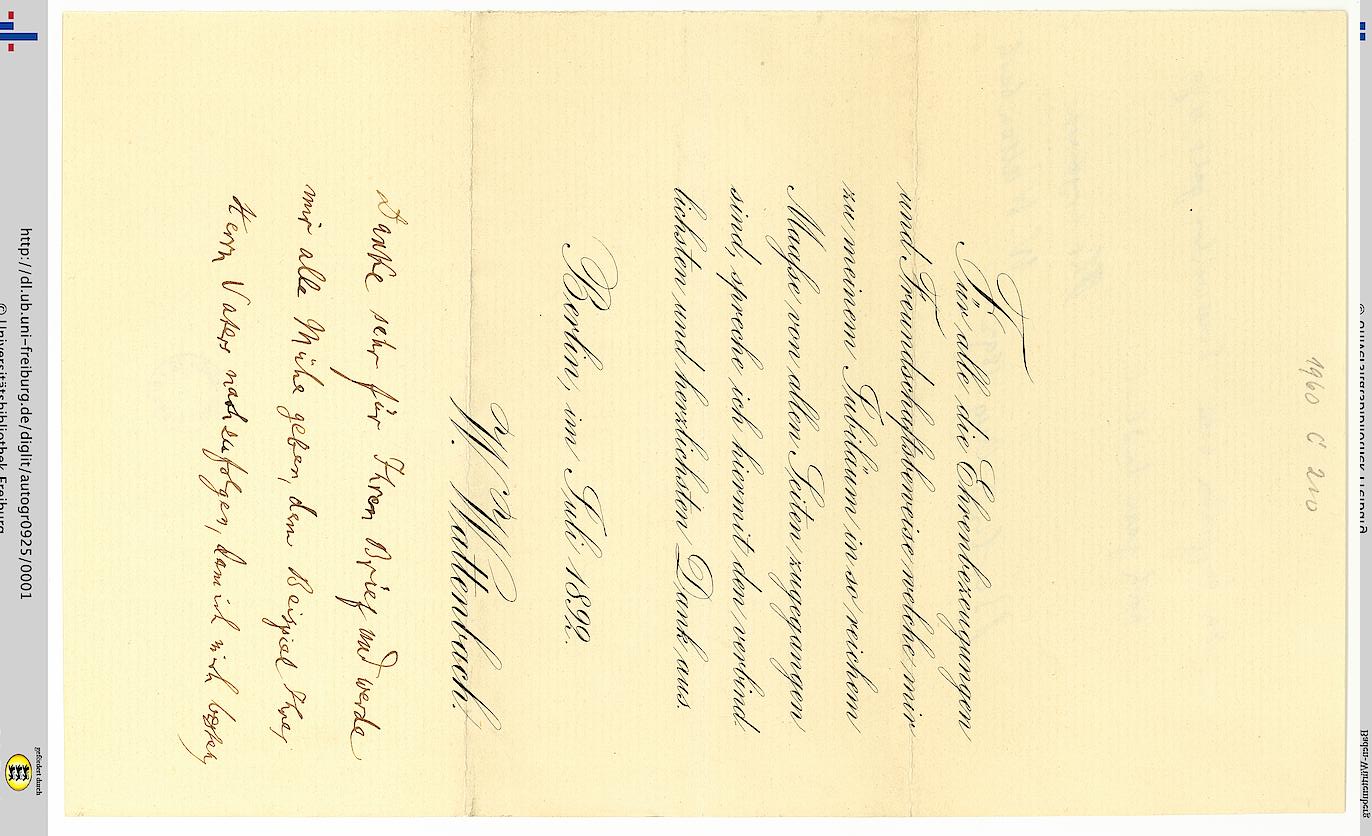 1960 C 210
Für alle die Ehrenbezeugungen
und Freundschaftsbeweise welche mir
zu meinem Jubiläum in so reichem
Maaße von allen Seiten zugegangen
sind, spreche ich hiermit den verbind
lichsten und herzlichsten Dank aus.
Berlin, im Juli 1892.
W. Wattenbach.
Danke sehr für Ihren Brief und werde
mir alle Mühe geben, dem Beispiel Ihres
Herrn Vaters nachzufolgen, kann ich mich
http://dl.ub.uni-freiburg.de/diglit/autogr0925/0001
© Universitätsbibliothek Freiburg
gefördert durch